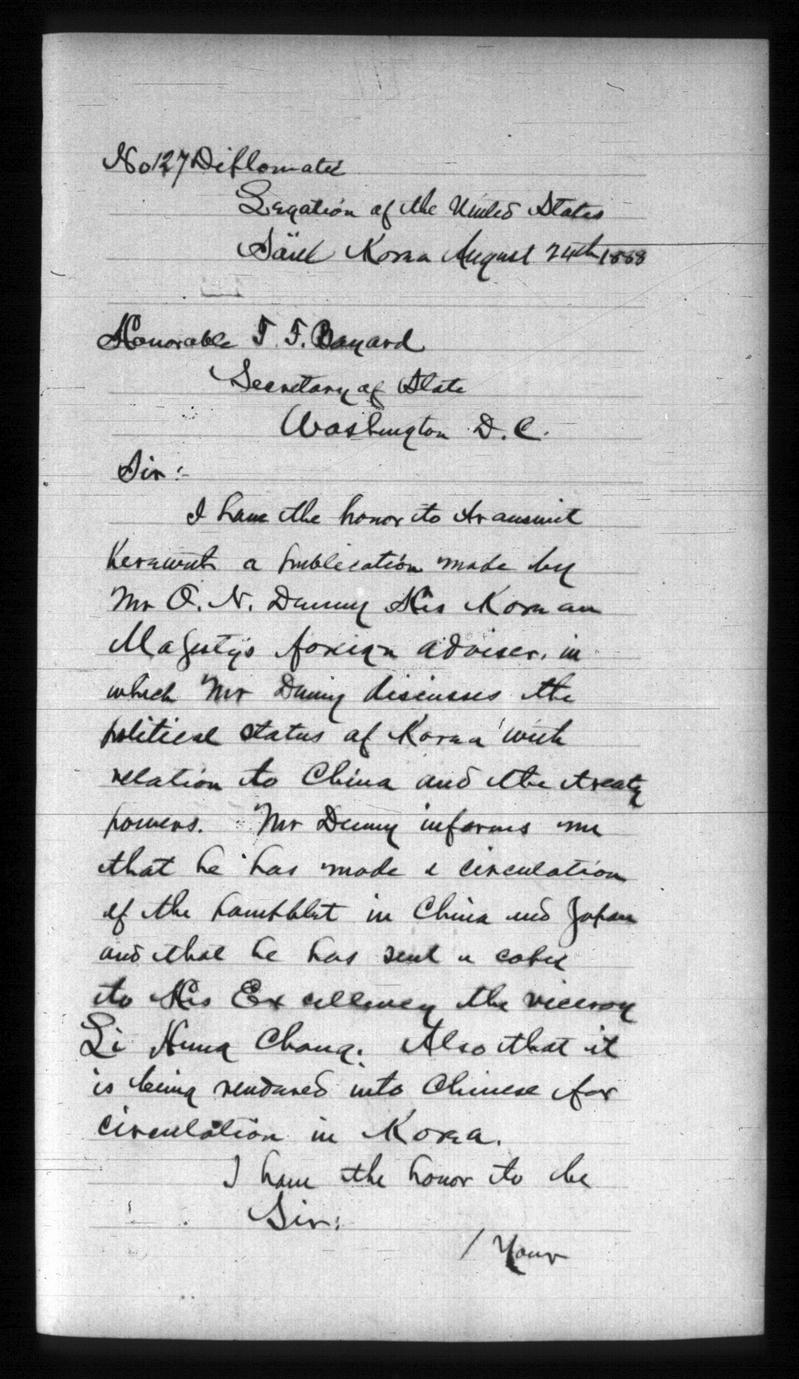 No 127 Diplomatic
Legation of the United States
Söul Korea August 24th 1888
Honorable T. F. Bayard
Secretary of State
Washington D. C.
Sir:
I have the honor to transmit
herewith a publication made by
Mr O. N. Denny His Korean
Majesty's foreign adviser, in
which Mr Denny discusses the
political status of Korea with
relation to China and the treaty
powers. Mr Denny informs me
that he has made a circulation
of the pamphlet in China and Japan
and that he has sent a copy
to His Excellency the viceroy
Li Hung Chang. Also that it
is being rendered into Chinese for
circulation in Korea.
I have the honor to be
Sir:
/ Your